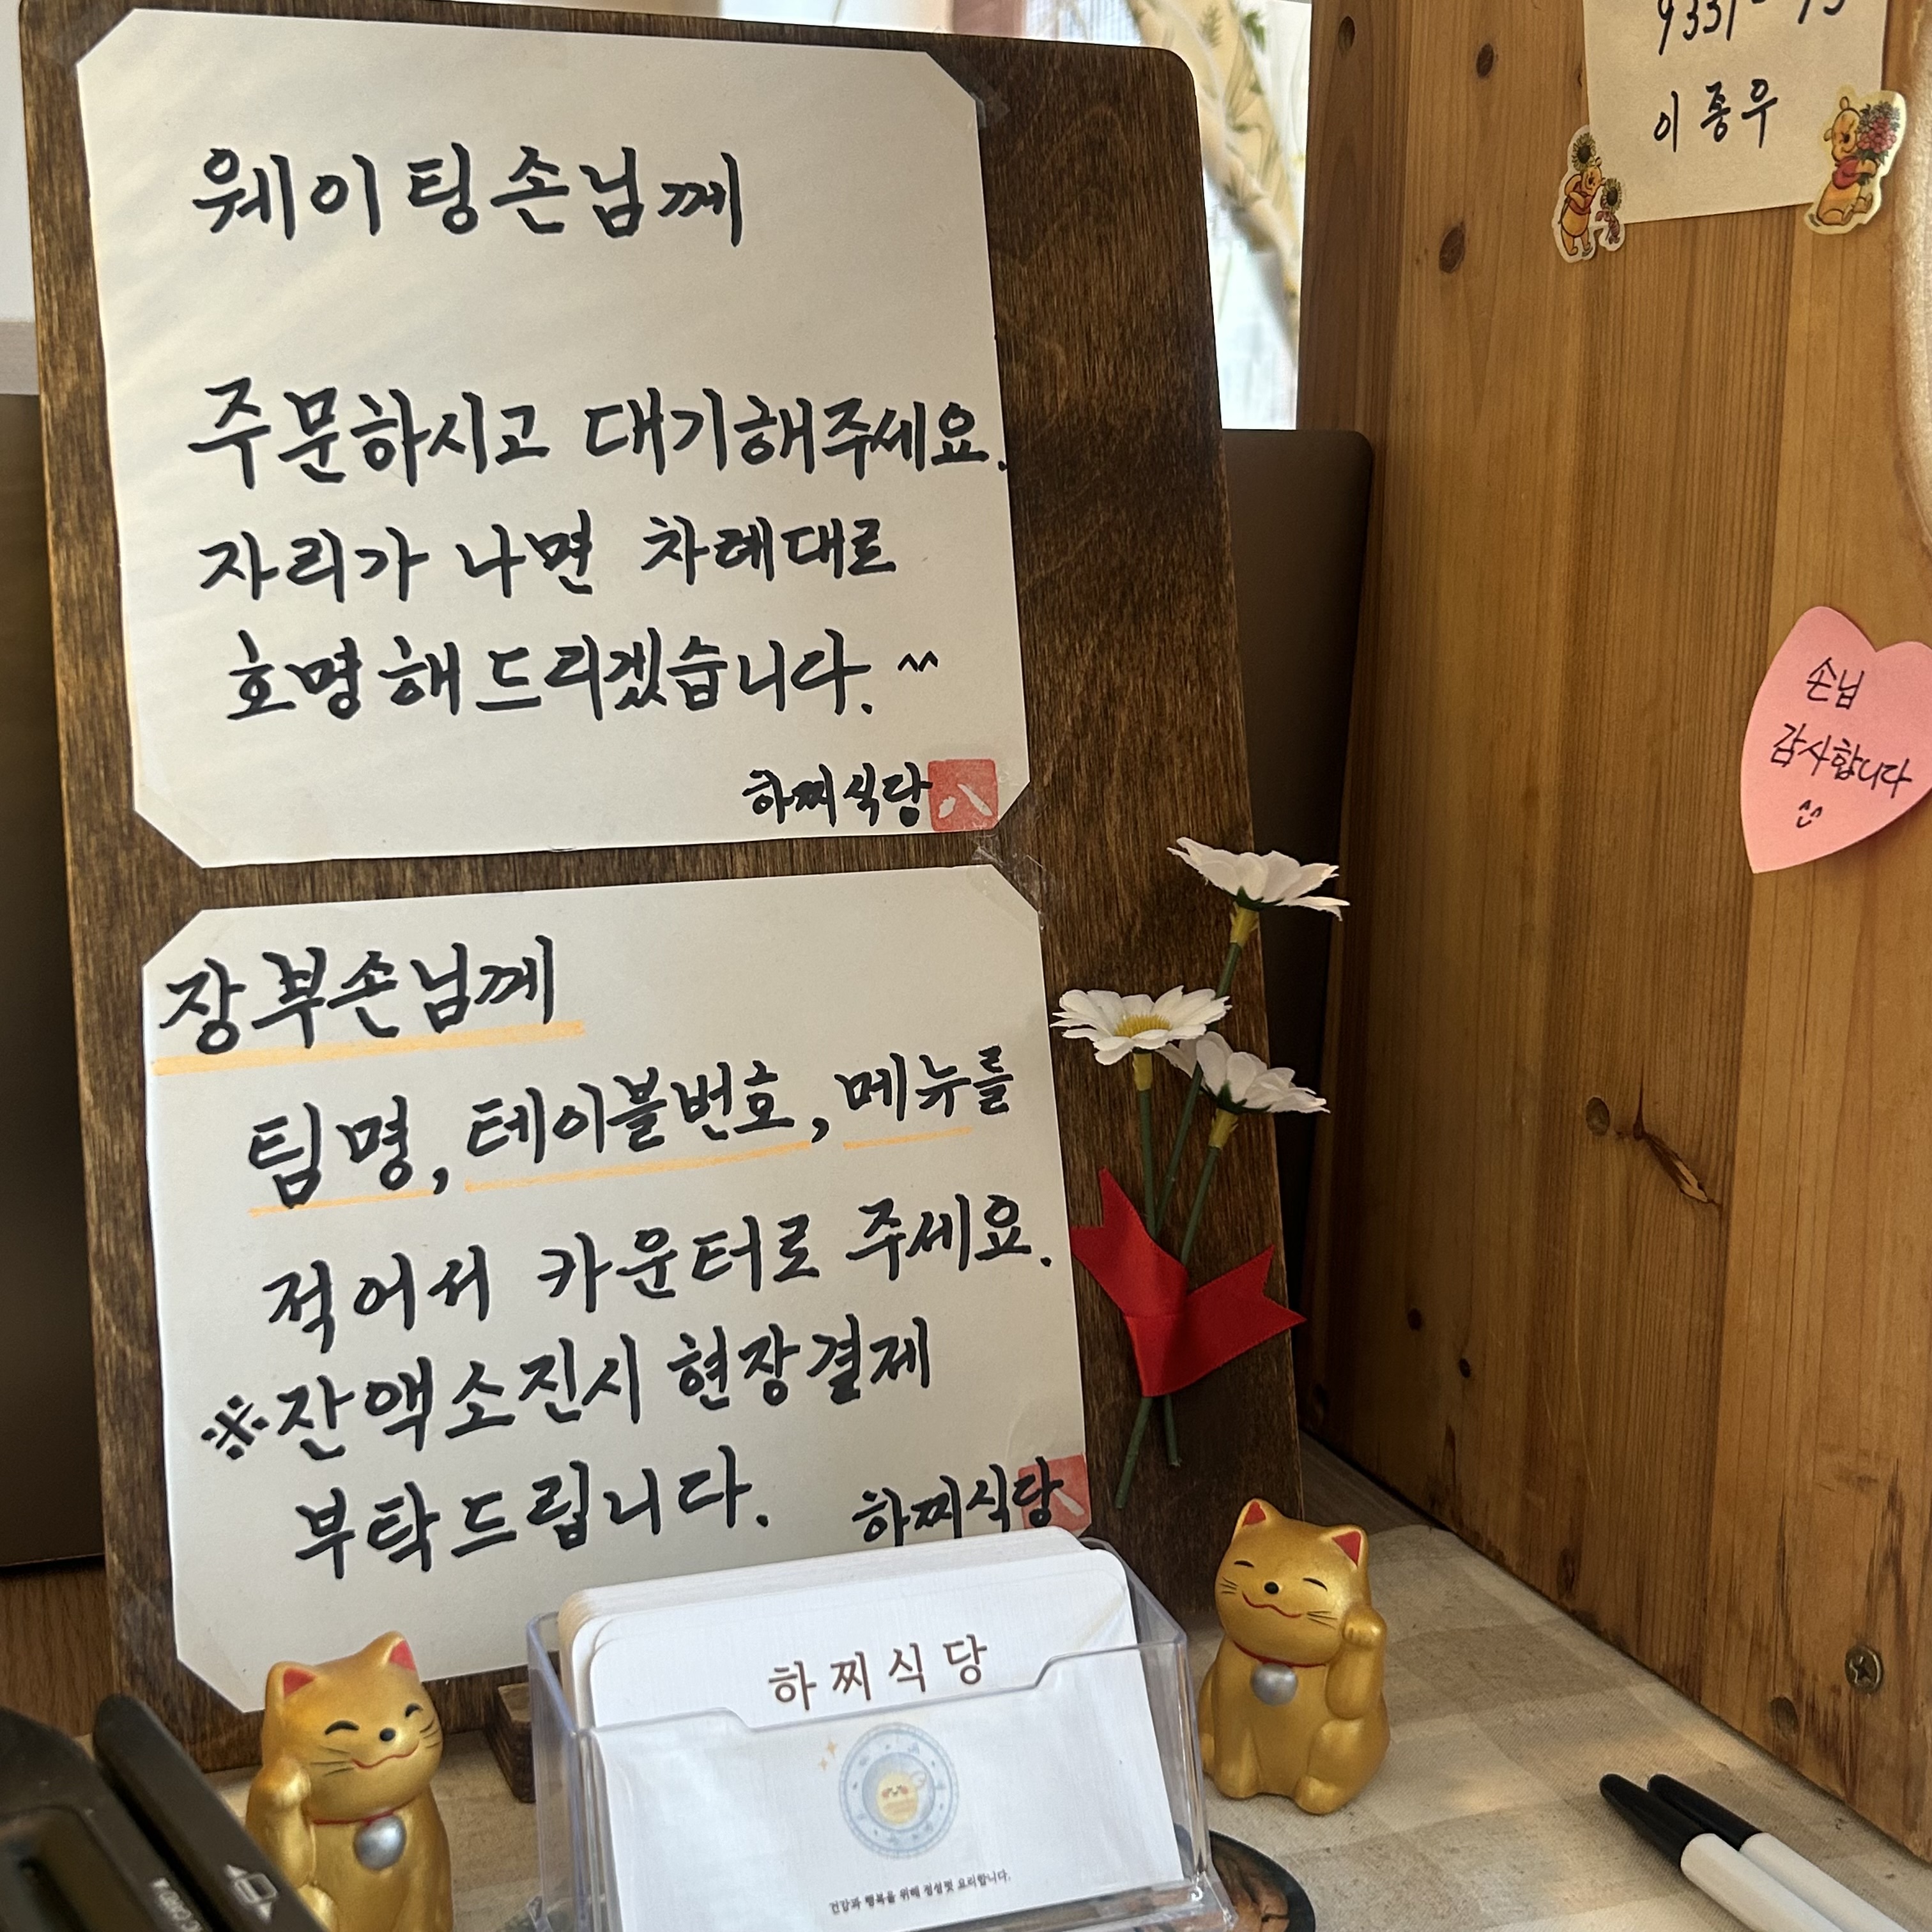 웨이팅손님께
주문하시고 대기해주세요.
자리가 나면 차례대로
호명해드리겠습니다. ^^
하찌식당
八
장부손님께
팀명, 테이블번호, 메뉴를
적어서 카운터로 주세요.
※잔액소진시 현장결제
부탁드립니다.
하찌식당
하찌식당
건강과 행복을 위해 정성껏 요리합니다.
이종우
손님
감사합니다
^^